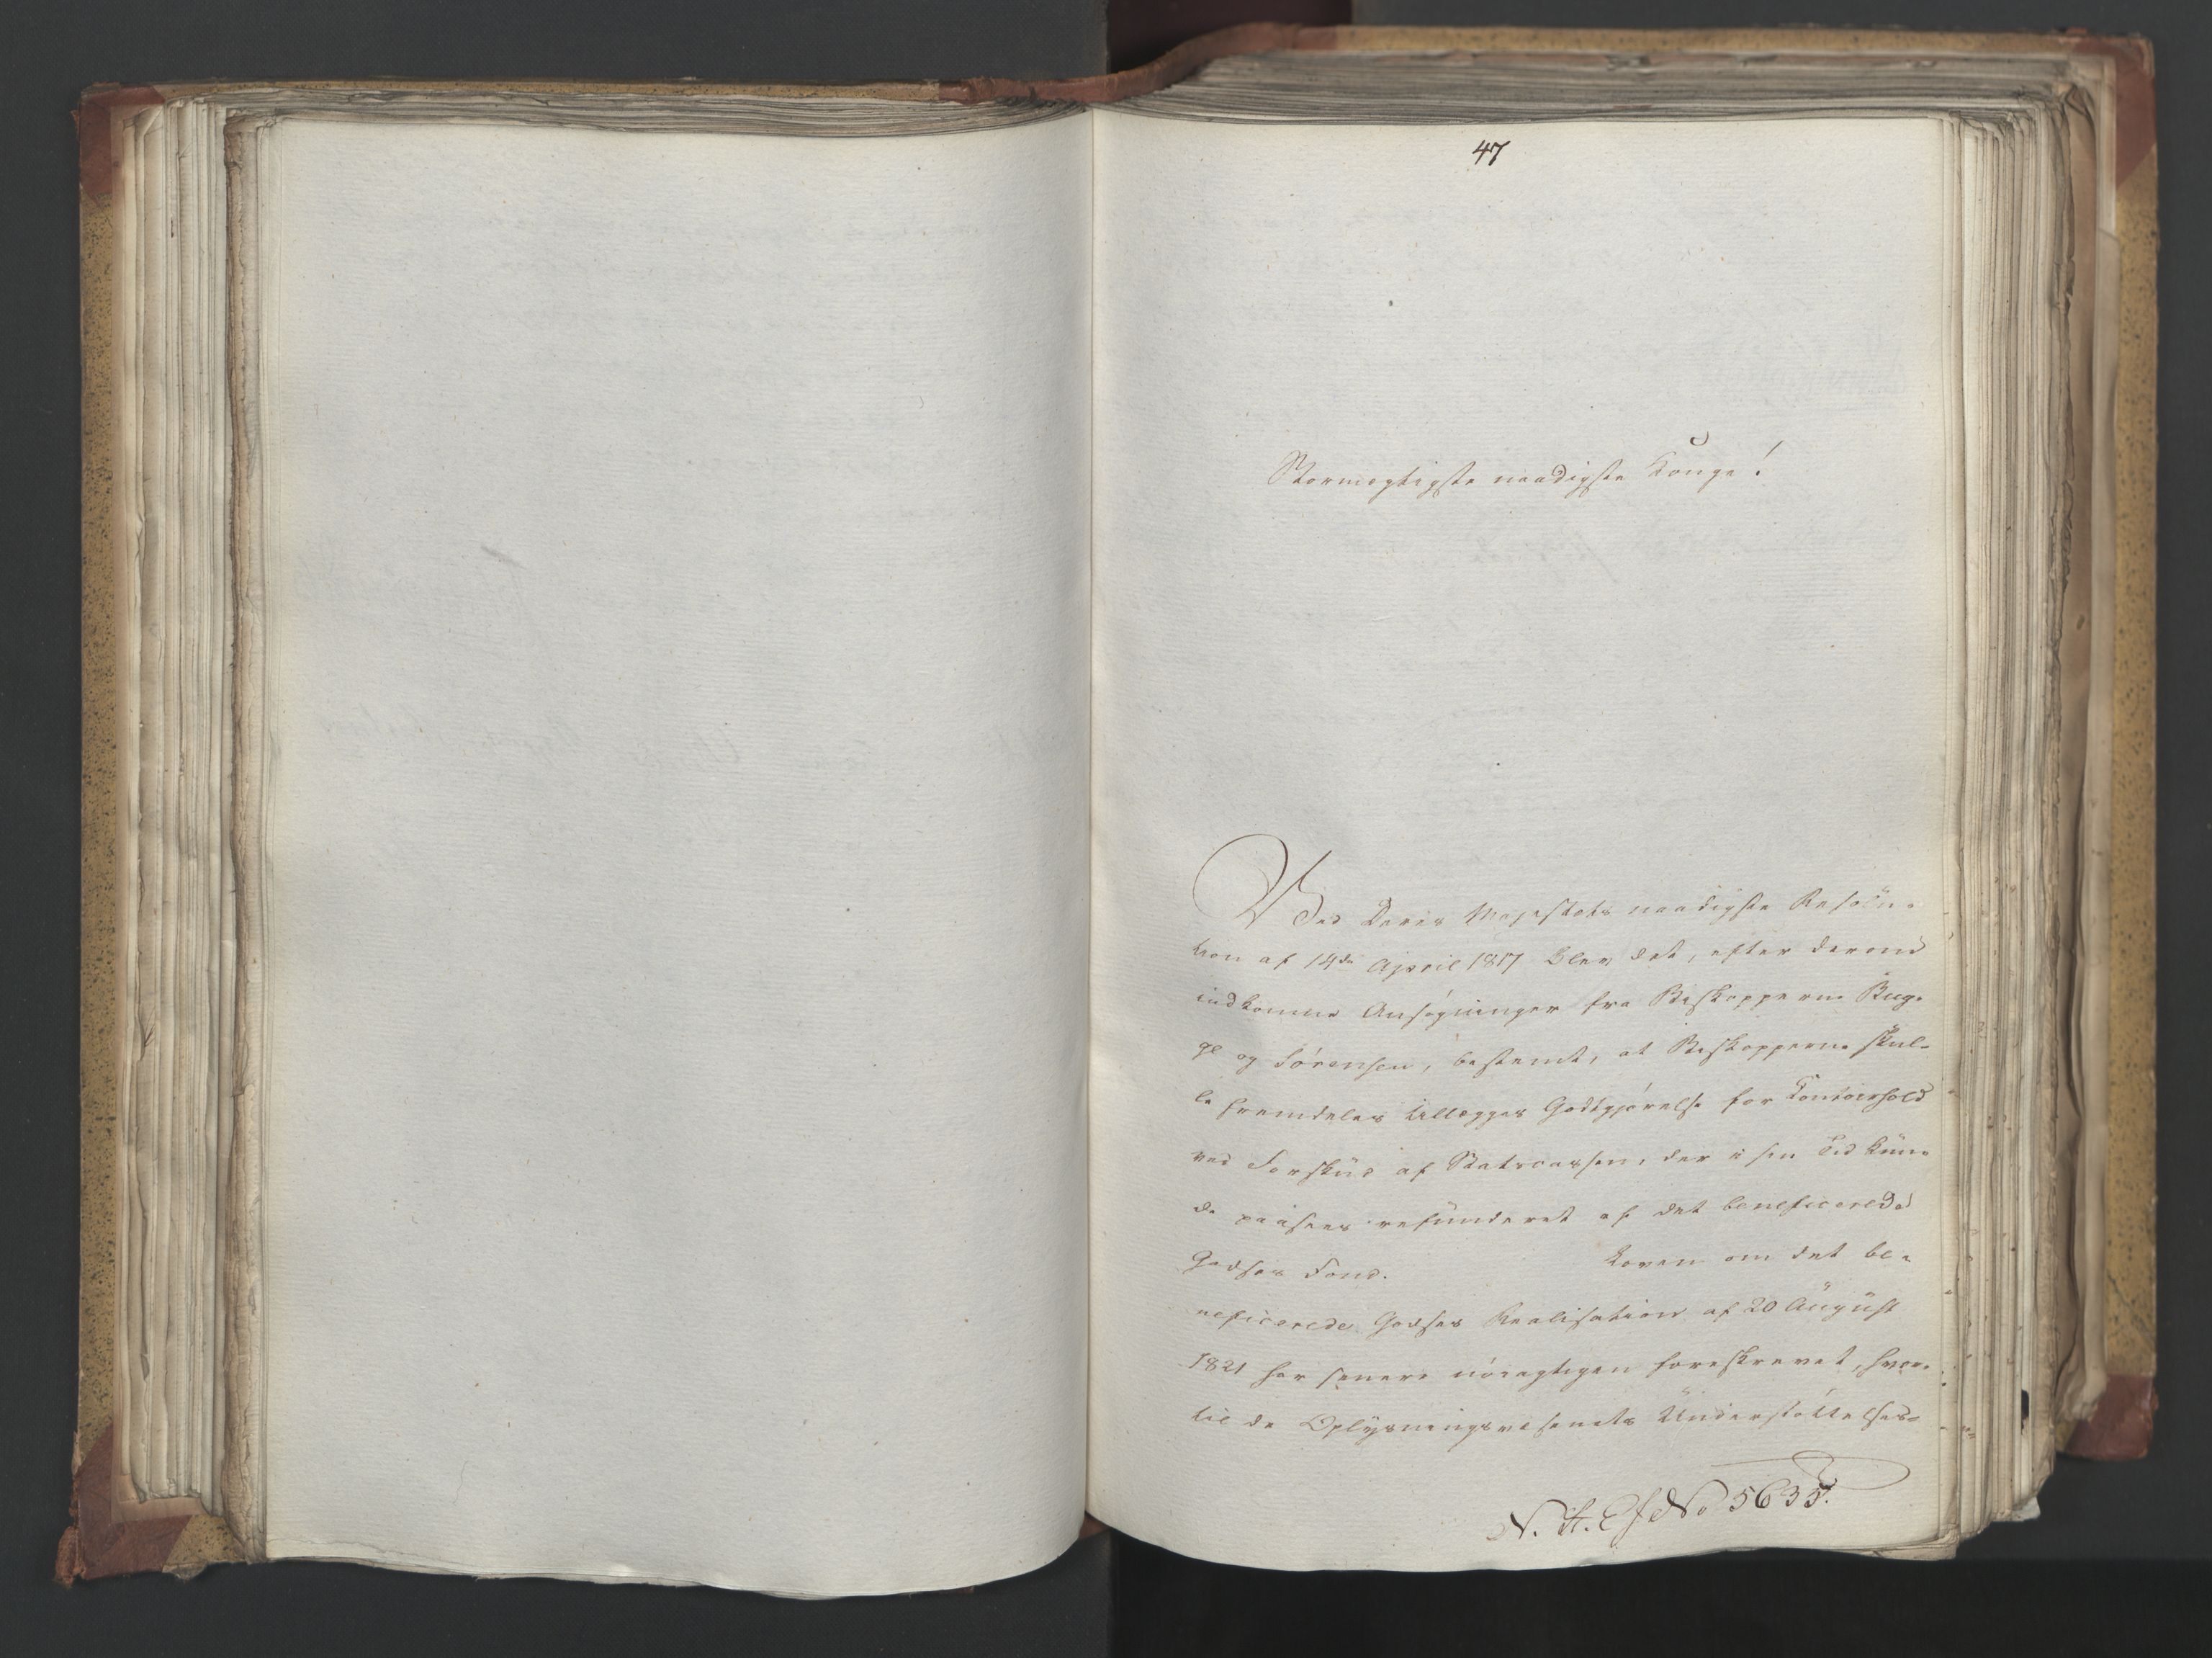 47
Stormægtigste naadigste Konge!
Ved Deres Majestæts naadigste Resolu-
tion af 14de April 1817 blev det, efter derom
indkomne Ansøgninger fra Biskopperne Bug-
ge og Sørensen, bestemt, at Biskopperne skul-
le fremdeles tillægges Godtgjørelse for Contoirhold
ved Forskud af Statscassen, der i sin Tid kun-
de paasees refunderet af det beneficerede
Godses Fond. Loven om det be-
neficerede Godses Realisation af 20 August
1821 har senere nøiagtigen foreskrevet, hvor-
til de Oplysningsvæsenets Understøttelses-
No 5635.